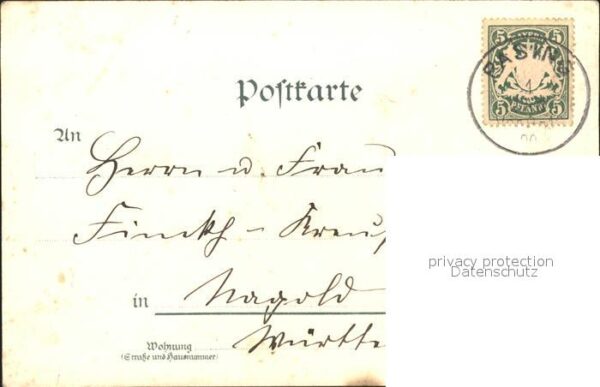 5 BAYERN 5
PASING
5 PFENNIG 5
Postkarte
An
Herrn u. Frau
Finckh - Kreu
privacy protection
Datenschutz
in Nagold
Wohnung
(Straße und Hausnummer)
Württe